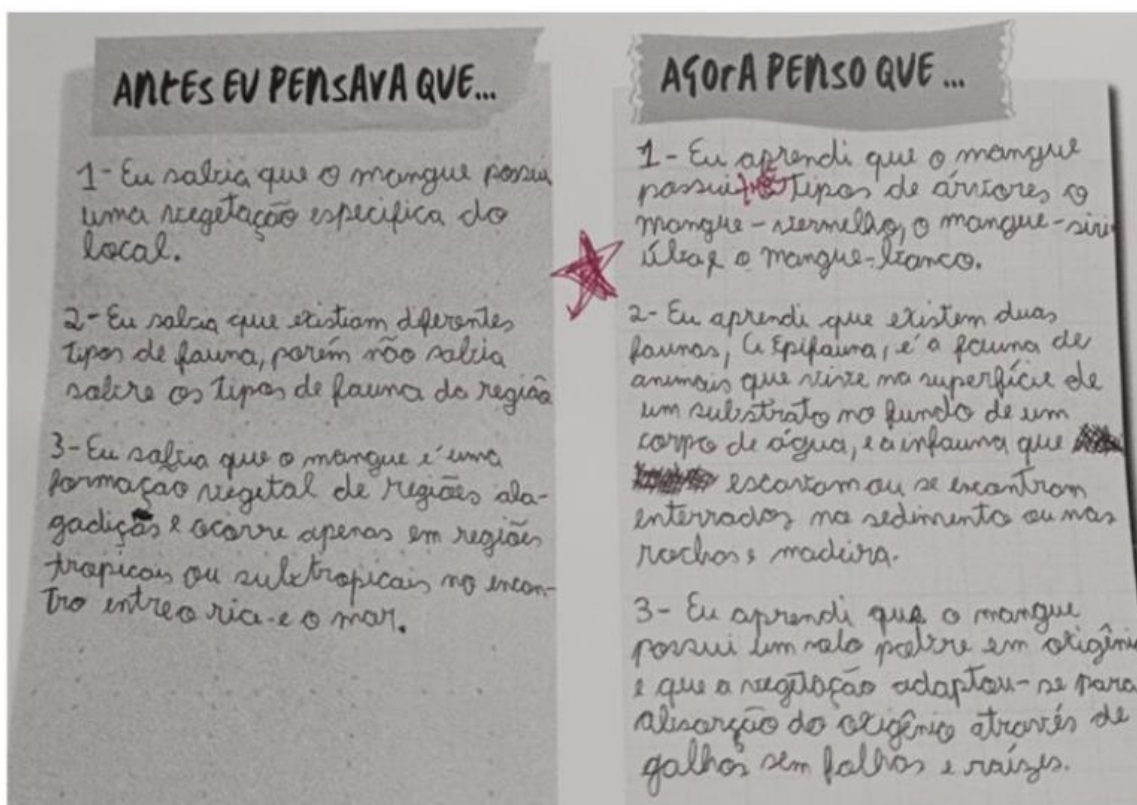 ANTES EU PENSAVA QUE...
1- Eu sabia que o mangue possui
uma vegetação especifica do
local.
2- Eu sabia que existiam diferentes
tipos de fauna, porém não sabia
sobre os tipos de fauna da região
3- Eu sabia que o mangue é uma
formação vegetal de regiões ala-
gadiças e ocorre apenas em regiões
tropicais ou subtropicais no encon-
tro entre o rio e o mar.
AGORA PENSO QUE...
1- Eu aprendi que o mangue
possui três tipos de árvores o
mangue-vermelho, o mangue-siri-
úba e o mangue-branco.
2- Eu aprendi que existem duas
faunas, a Epifauna, é a fauna de
animais que vive na superfície de
um substrato no fundo de um
corpo de água, e a infauna que
escavam ou se encontram
enterrados no sedimento ou nas
rochas e madeira.
3- Eu aprendi que o mangue
possui um solo pobre em oxigêni
e que a vegetação adaptou-se para
absorção do oxigênio através de
galhos sem folhas e raízes.